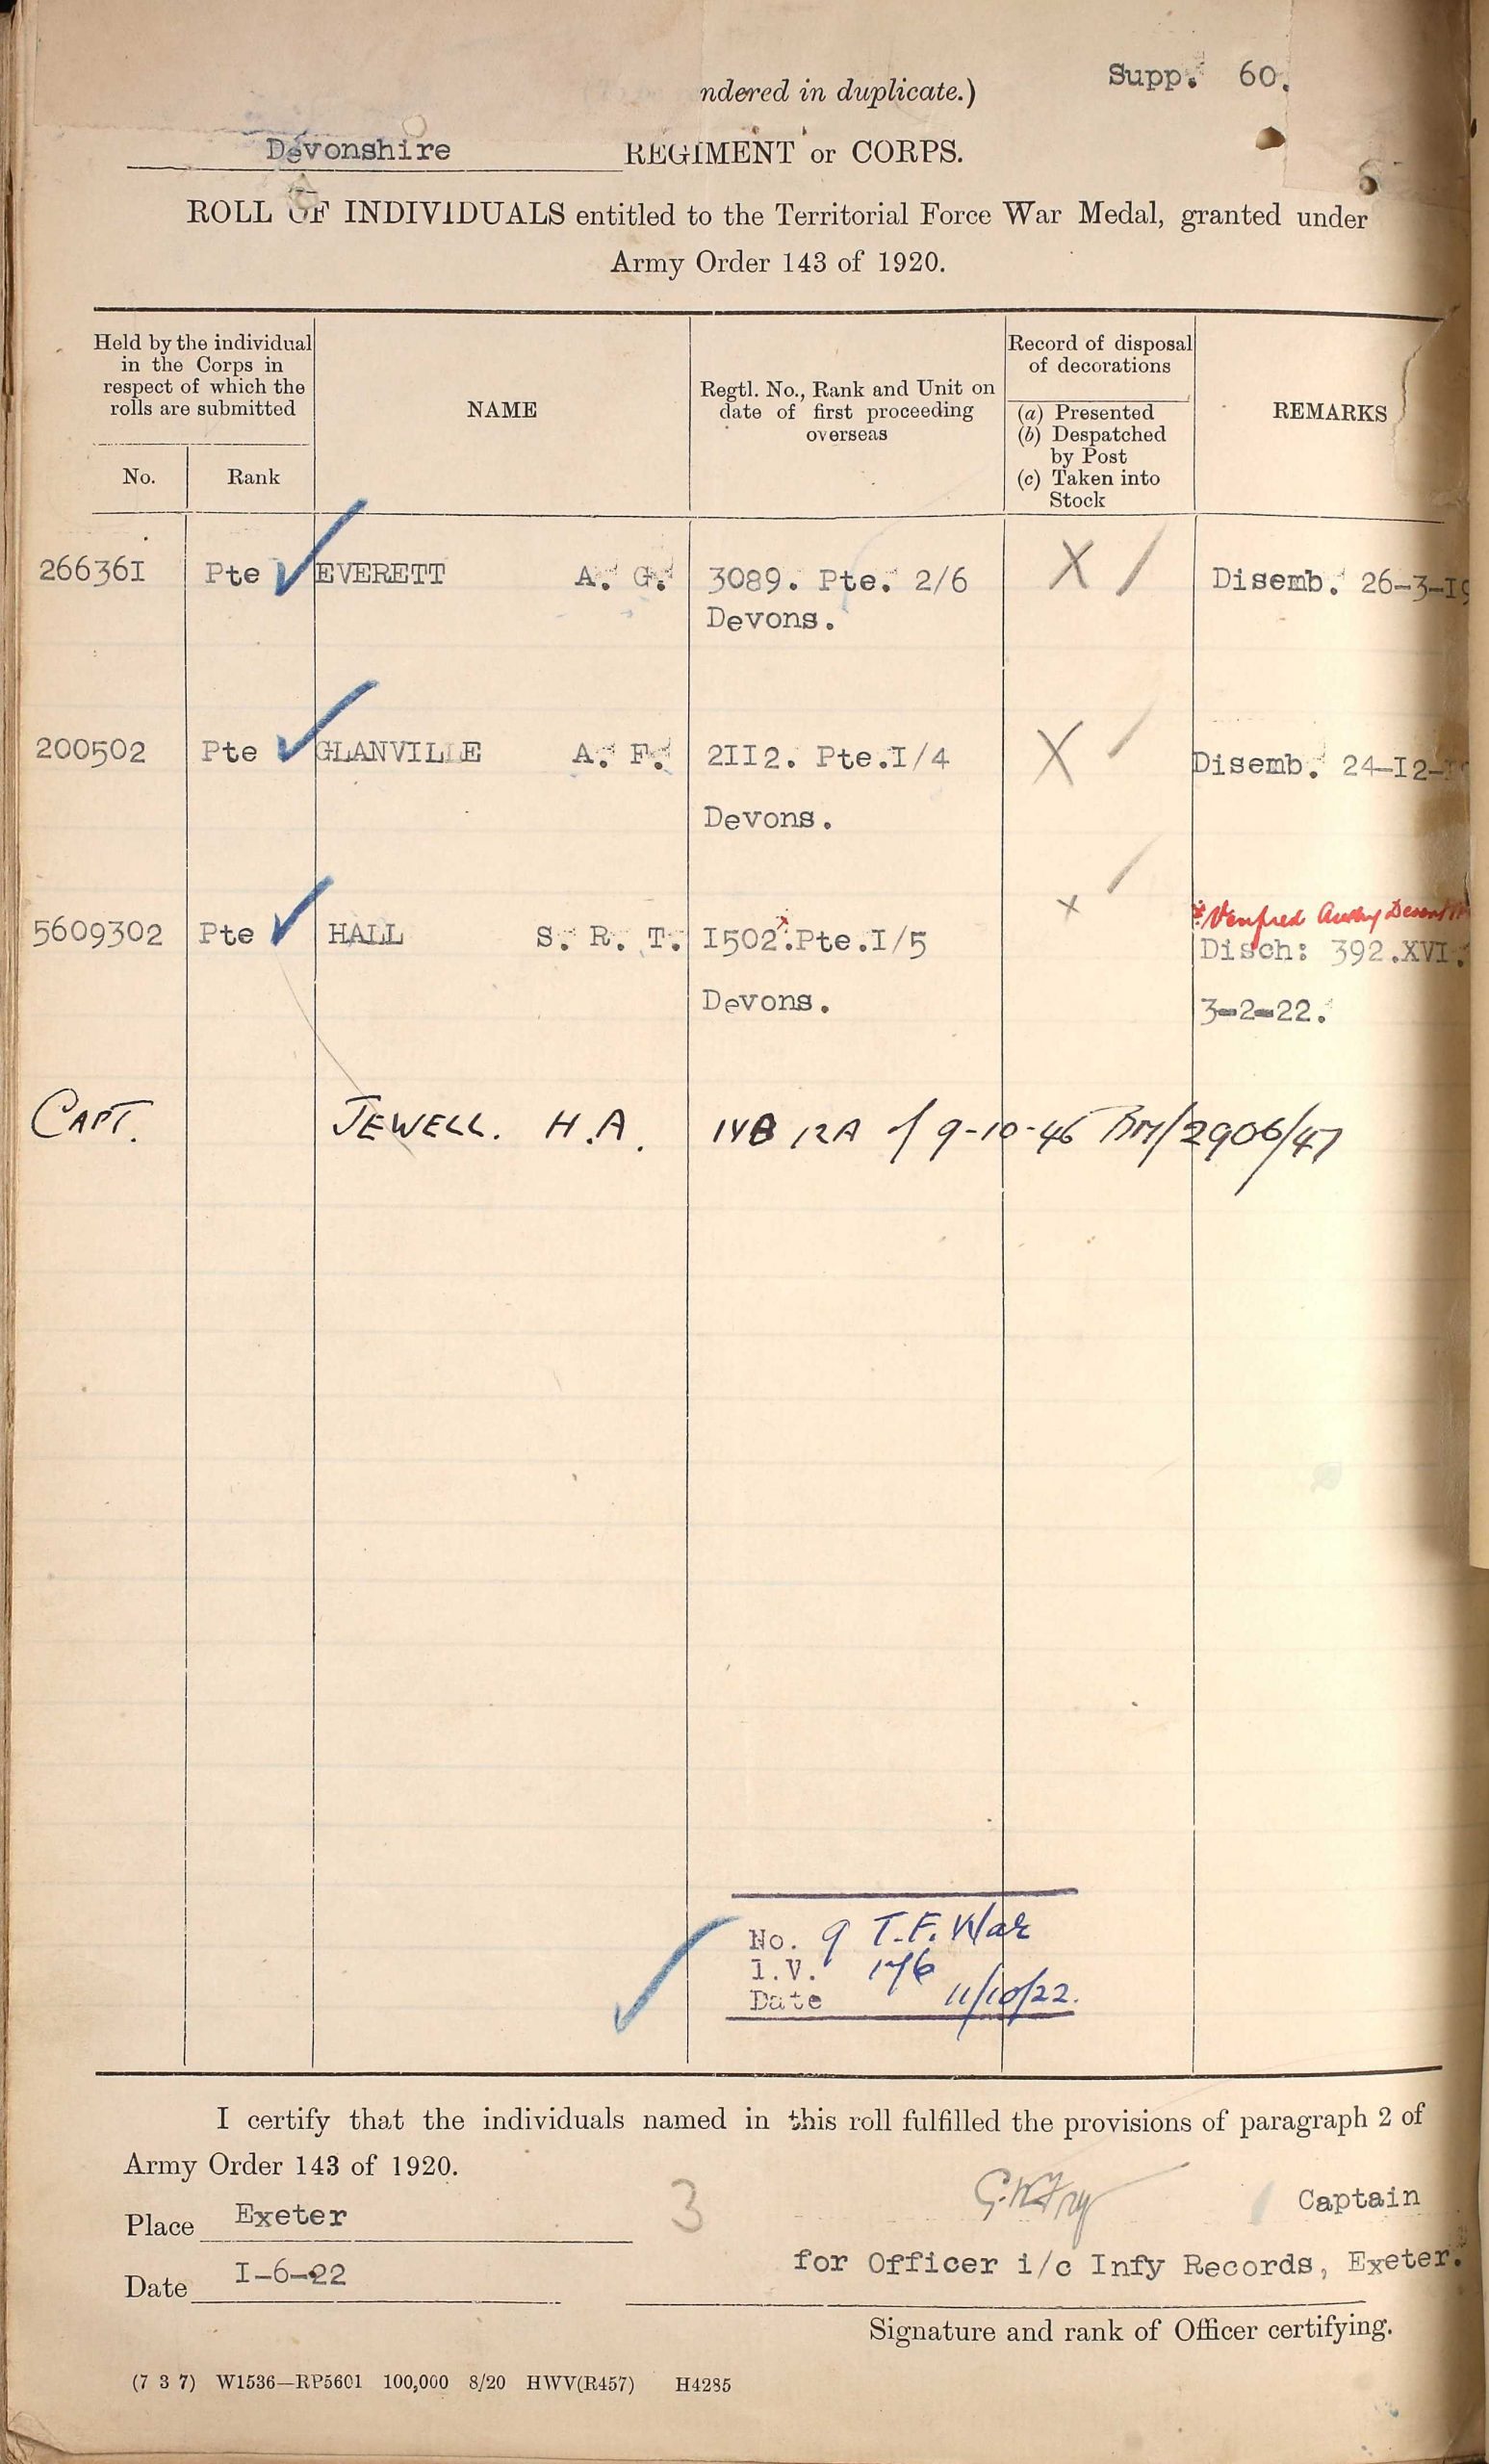 Supp. 60.
ndered in duplicate.)
Devonshire REGIMENT or CORPS.
ROLL OF INDIVIDUALS entitled to the Territorial Force War Medal, granted under
Army Order 143 of 1920.
Held by the individual
in the Corps in
respect of which the
rolls are submitted
No.
Rank
NAME
Regtl. No., Rank and Unit on
date of first proceeding
overseas
Record of disposal
of decorations
(a) Presented
(b) Despatched
by Post
(c) Taken into
Stock
REMARKS
266361 Pte EVERETT A. G. 3089. Pte. 2/6 X Disemb. 26-3-19
Devons.
200502 Pte GLANVILLE A. F. 2II2. Pte.I/4 X Disemb. 24-I2-
Devons.
* Verified
5609302 Pte HALL S. R. T. I502.Pte.I/5 x Disch: 392.XVI.
Devons. 3-2-22.
CAPT. JEWELL. H.A. 9-10-46 /2906/47
No. 9 T.F. War
I.V. 176
Date 11/10/22.
I certify that the individuals named in this roll fulfilled the provisions of paragraph 2 of
Army Order 143 of 1920.
3
Captain
Place Exeter
for Officer i/c Infy Records, Exeter.
Date I-6-22
Signature and rank of Officer certifying.
(7 3 7) W1536—RP5601 100,000 8/20 HWV(R457) H4285